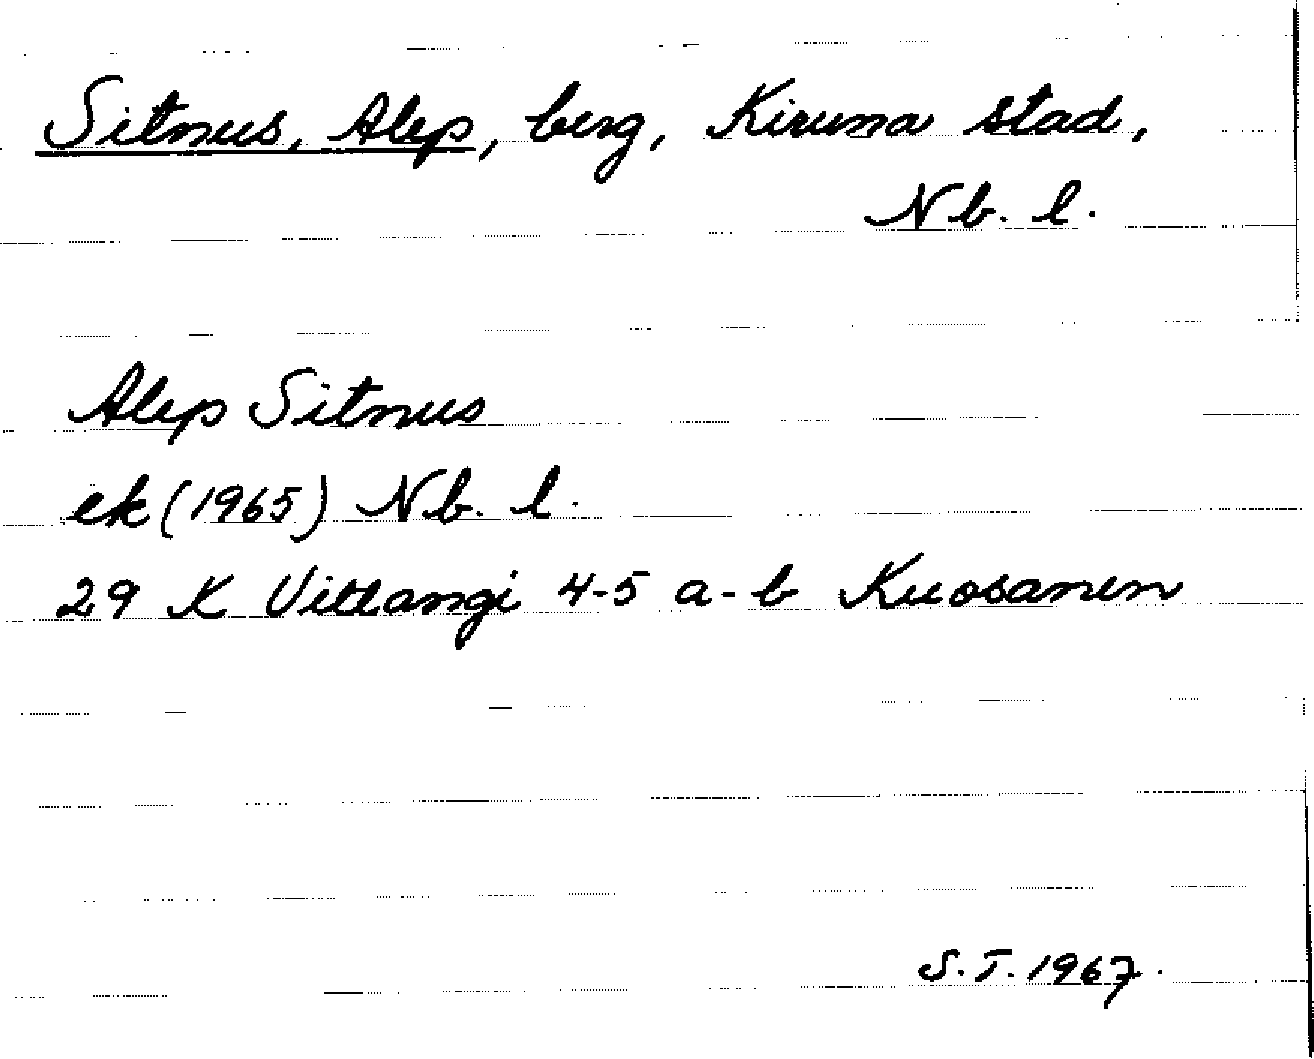 Sitnus, Alep, berg, Kiruna stad,
Nb. l.
Alep Sitnus
ek (1965) Nb. l.
29 K Vittangi 4-5 a-b Kuosanen
S.T. 1967.